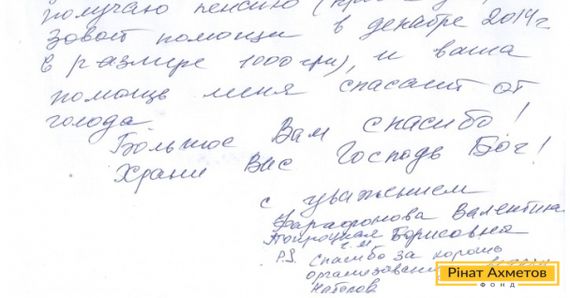 получаю пенсию (кроме
зовой помощи в декабре 2014г
в размере 1000 грн), и ваша
помощь меня спасает от
голода.
Большое Вам спасибо!
Храни Вас Господь Бог!
с уважением
Фарафонова Валентина
Борисовна
P.S. Спасибо за хорошо
Рінат Ахметов
ФОНД